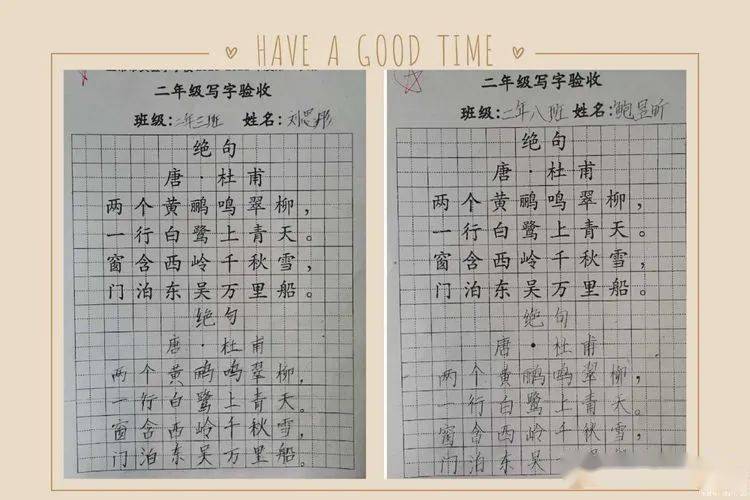 HAVE A GOOD TIME
二年级写字验收
班级:二年三班 姓名:刘思
绝句
唐·杜甫
两个黄鹂鸣翠柳,
一行白鹭上青天。
窗含西岭千秋雪,
门泊东吴万里船。
绝句
唐·杜甫
两个黄鹂鸣翠柳,
一行白鹭上青天。
窗含西岭千秋雪,
门泊东吴万里船。
二年级写字验收
班级:二年八班 姓名:鲍昱昕
绝句
唐·杜甫
两个黄鹂鸣翠柳,
一行白鹭上青天。
窗含西岭千秋雪,
门泊东吴万里船。
绝句
唐·杜甫
两个黄鹂鸣翠柳,
一行白鹭上青天。
窗含西岭千秋雪,
门泊东吴